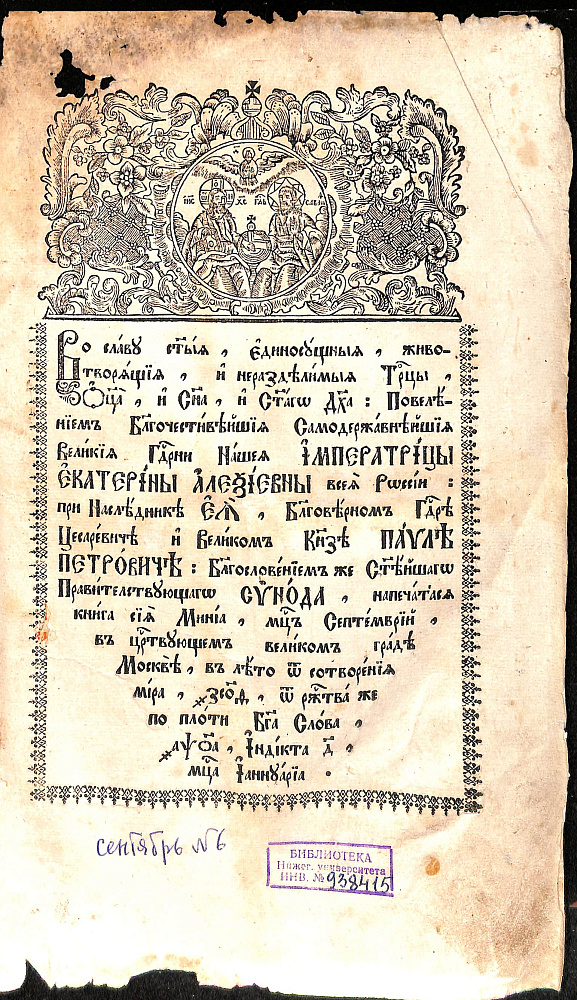 І҆ИС ХС ГДЬ САВА
Во сла́ву ст҃ы́ѧ , є҆диносꙋ́щныѧ , живо-
творѧ́щїѧ , и҆ нераздѣли́мыѧ Трⷪ҇цы ,
Ѻ҆ц҃а̀ , и҆ Сн҃а , и҆ Ст҃а́гѡ Дх҃а : Повелѣ́-
нїемъ Бл҃гочести́вѣйшїѧ Самодержа́внѣйшїѧ
Вели́кїѧ Гдⷭ҇рни На́шеѧ И҆МПЕРАТРИ́ЦЫ
Є҆КАТЕРІ́НЫ А҆ЛЕѮІ́ЕВНЫ всеѧ̀ Рѡссі́и :
при Наслѣ́дникѣ Є҆Ѧ̀ , Бл҃говѣ́рномъ Гдⷭ҇рѣ
Цесаре́вичѣ и҆ Вели́комъ Кнѧ́зѣ ПА́ѴЛѢ
ПЕТРО́ВИЧѢ : Бл҃гослове́нїемъ же Ст҃ѣ́йшагѡ
Прави́телствꙋющагѡ СѴНО́ДА , напеча́тасѧ
кни́га сїѧ̀ Мині́а , мцⷭ҇ъ Септе́мврїй ,
въ црⷭ҇твꙋющемъ вели́комъ гра́дѣ
Москвѣ̀ , въ лѣ́то ѿ сотворе́нїѧ
мі́ра , ѿ ржⷭ҇тва́ же
по пло́ти Бг҃а Сло́ва ,
҂аѱо҃а , І҆нді́кта д҃ ,
мцⷭ҇а І҆аннꙋа́рїа .
сентябрь №6
БИБЛИОТЕКА
Нижег. университета
ИНВ. № 938415